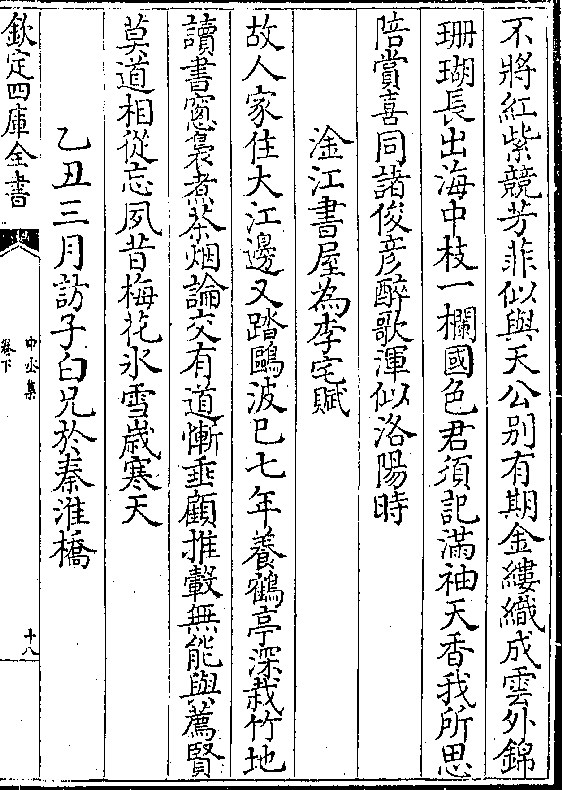 不將紅紫競芳菲似與天公别有期金縷織成雲外錦
珊瑚長出海中枝一欄國色君須記滿袖天香我所思
陪賞喜同諸俊彦醉歌渾似洛陽時
淦江書屋為李宅賦
故人家住大江邊又踏鷗波已七年養鶴亭深栽竹地
讀書窓裊煮茶烟論交有道慚垂顧推轂無能與薦賢
莫道相從忘夙昔梅花氷雪歲寒天
乙丑三月訪子白兄於秦淮橋
欽定四庫全書
中丞集
卷下
十八